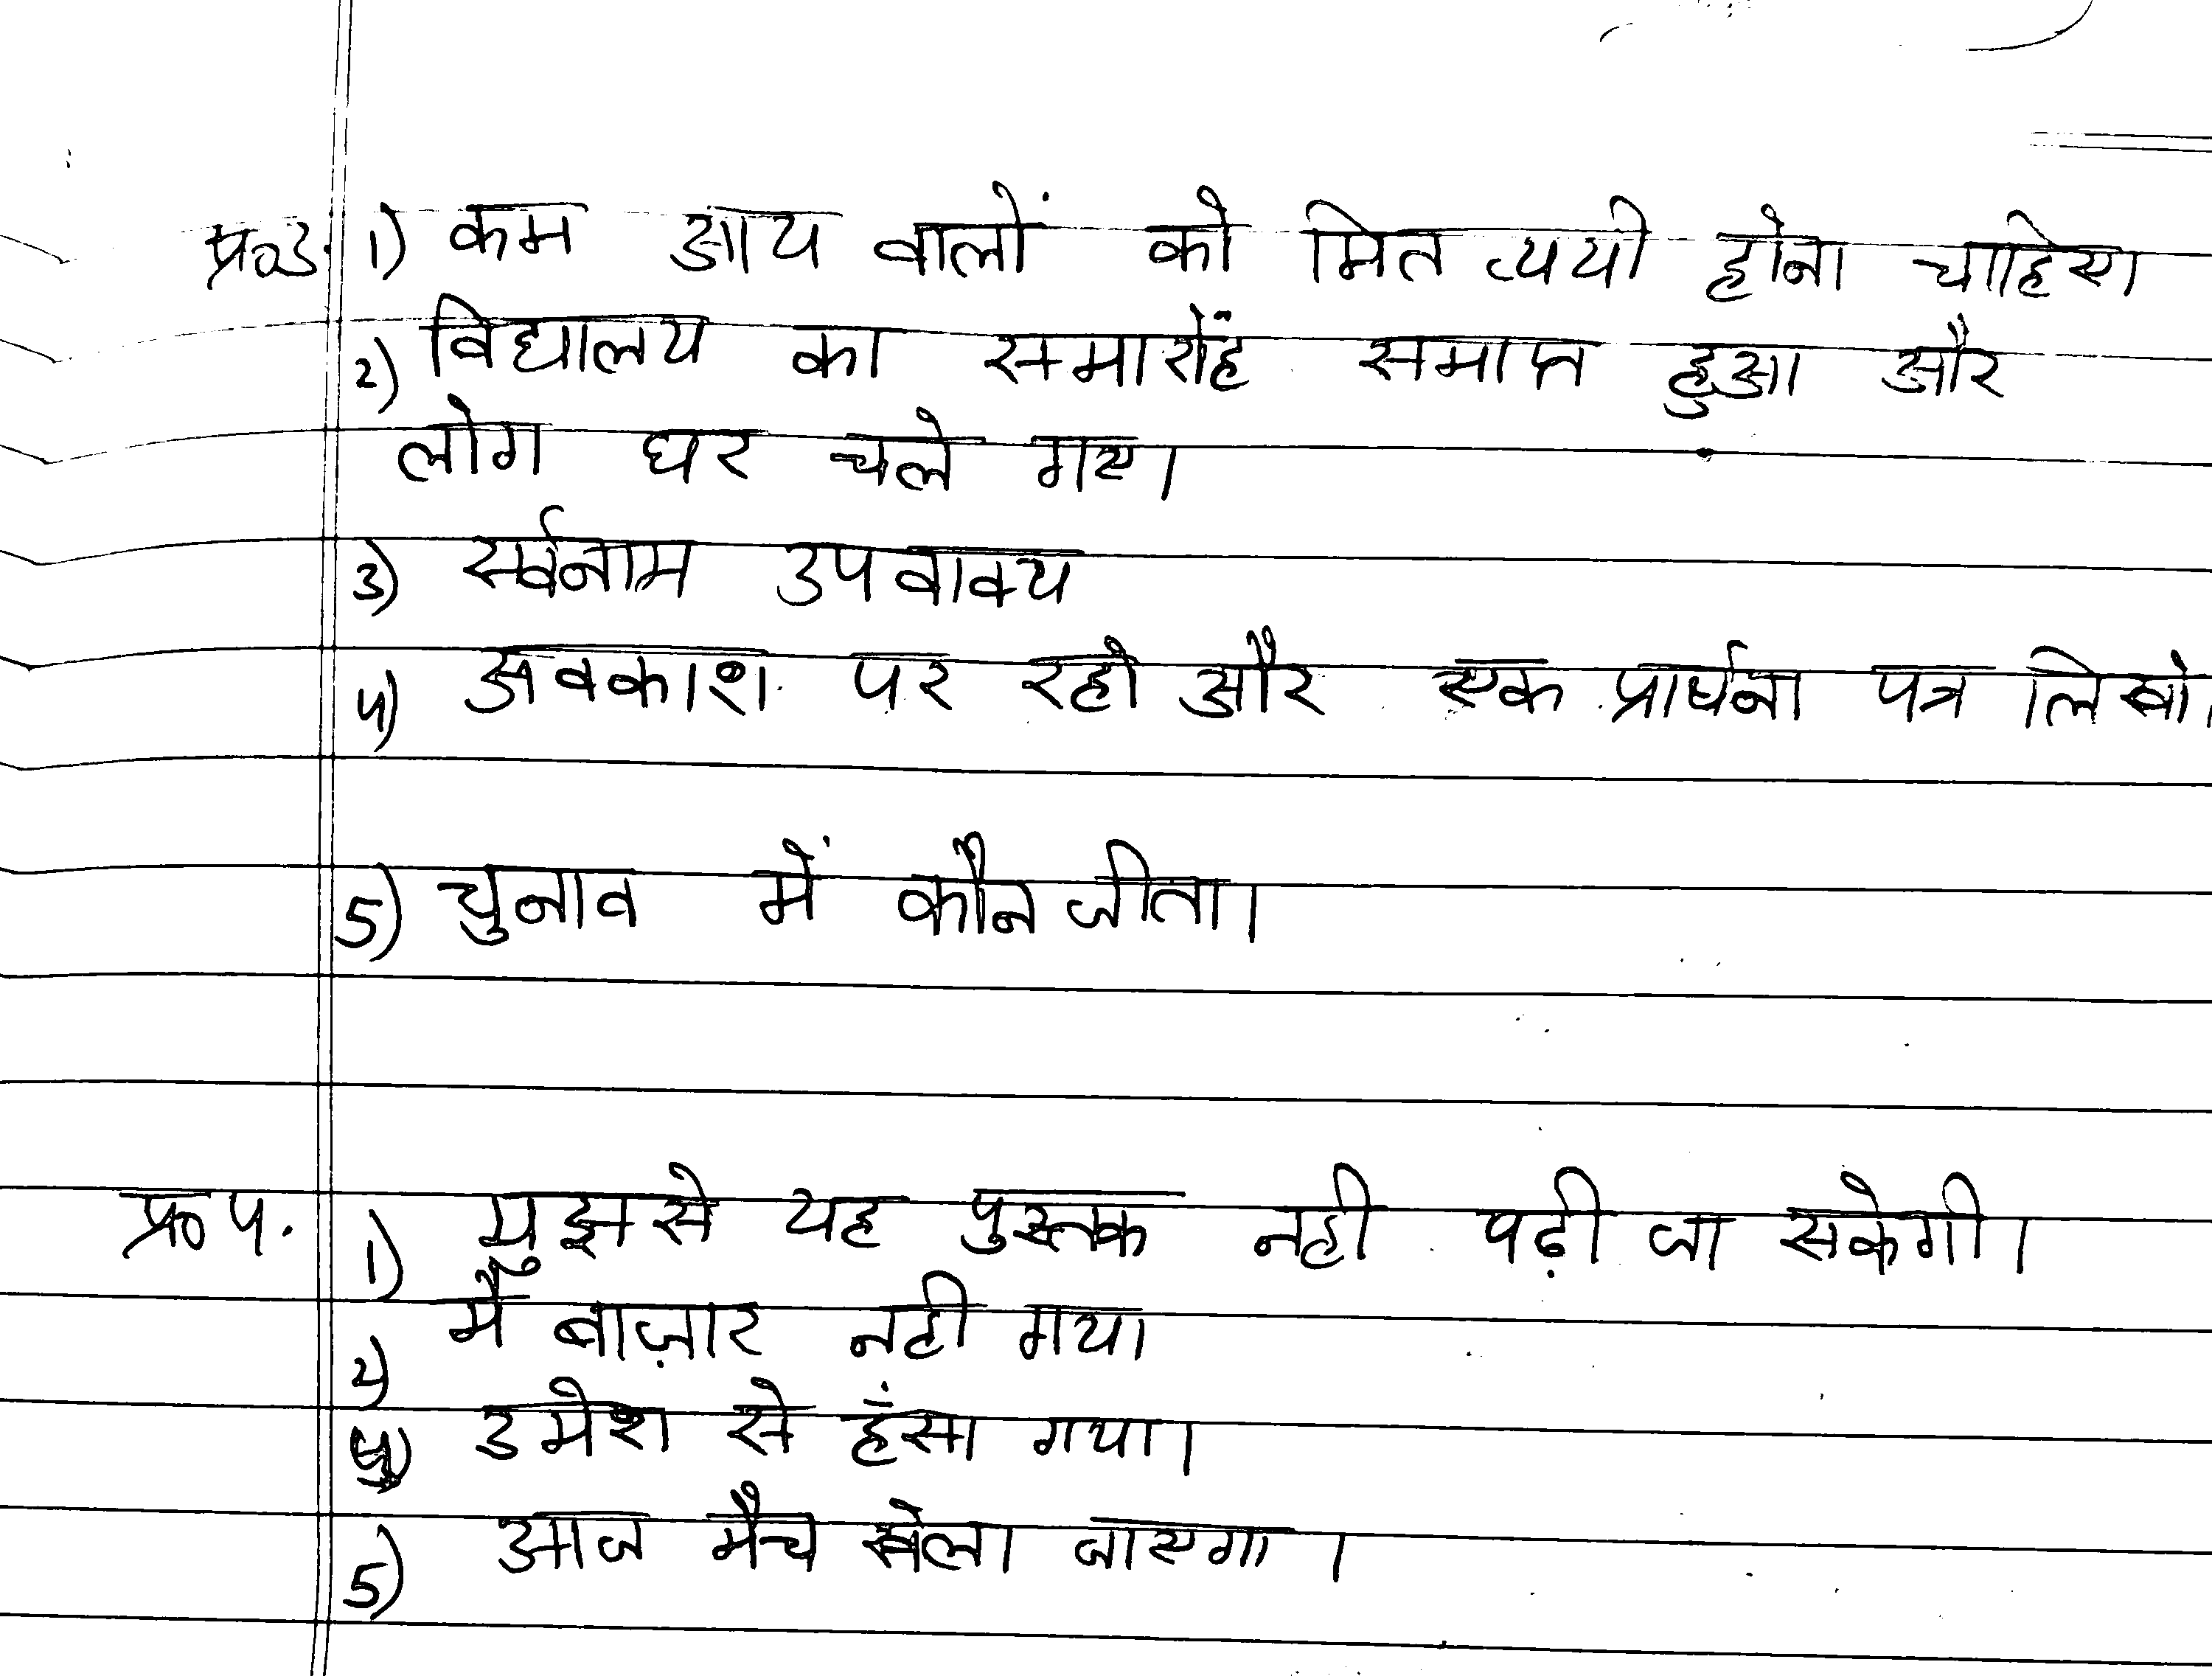 प्र०3. 1) कम आय वालों को मित व्ययी होना चाहिए।
2) विद्यालय का समारोंह समाप्त हुआ और
लोग घर चले गए।
3) र्स्वनाम उपवाक्य
4) अवकाश पर रहो और एक प्रार्घना पत्र लिखो।
5) चुनाव में कौन जीता।
प्र० 4. 1) मुझसे यह पुस्तक नही पढ़ी जा सकेगी।
2) मै बाज़ार नही गया।
4) उमेश से हंसा गया।
5) आज मैच खेला जाएगा।